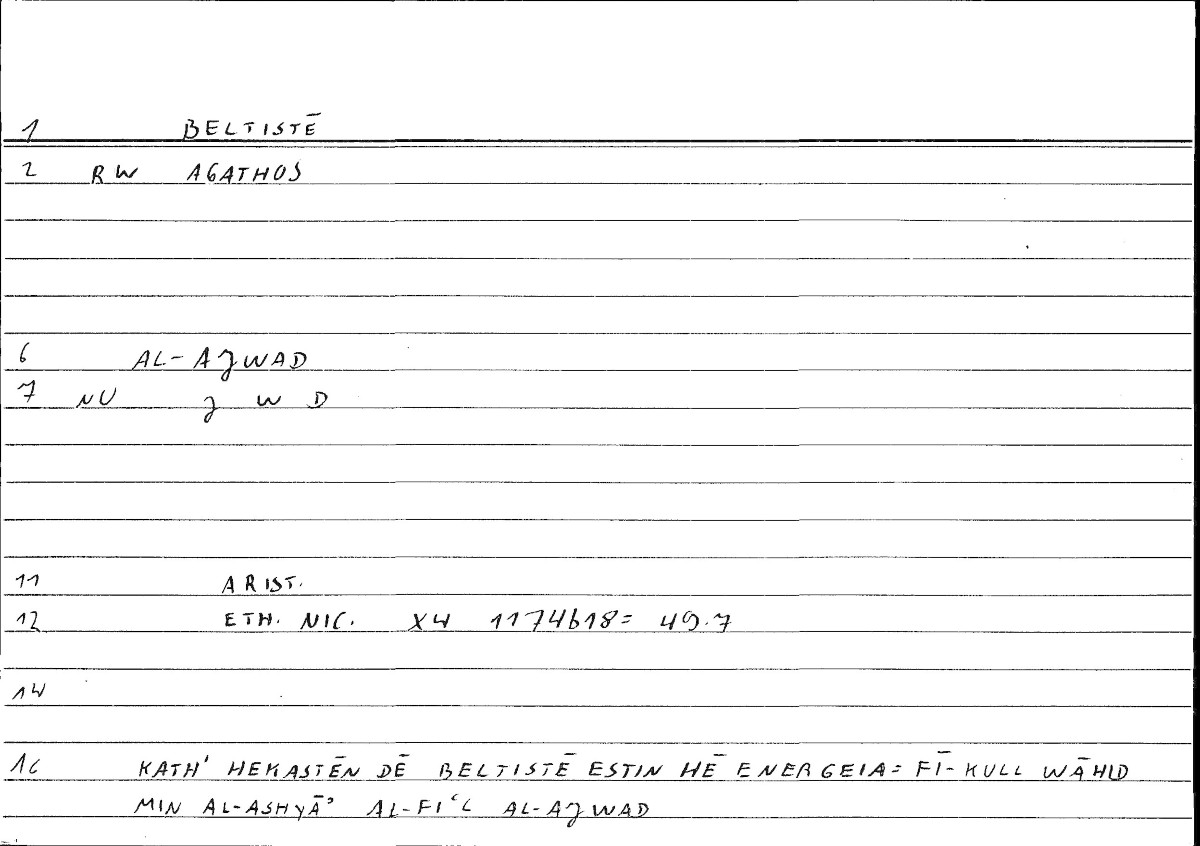 1 BELTISTĒ
2 RW AGATHOS
6 AL-AJWAD
7 NU J W D
11 ARIST.
12 ETH. NIC. X4 1174b18= 49.7
14
16 KATH' HEKASTĒN DĒ BELTISTĒ ESTIN HĒ ENERGEIA= FĪ-KULL WĀHID
MIN AL-ASHYĀʾ AL-FIʿL AL-AJWAD